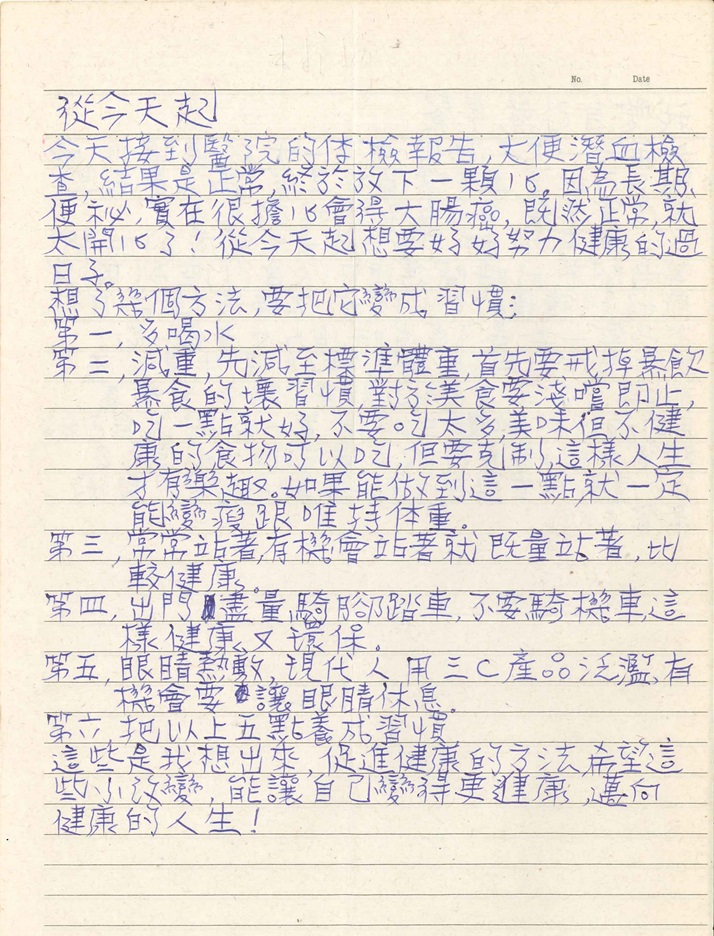 No. Date
從今天起
今天接到醫院的体檢報告,大便潛血檢
查,結果是正常,終於放下一顆心。因為長期
便祕,實在很擔心會得大腸癌,既然正常,就
太開心了!從今天起想要好好努力健康的過
日子。
想了幾個方法,要把它變成習慣:
第一,多喝水
第二,減重,先減至標準體重,首先要戒掉暴飲
暴食的壞習慣,對於美食要淺嚐即止,
吃一點就好,不要吃太多,美味但不健
康的食物可以吃,但要克制,這樣人生
才有樂趣。如果能做到這一點就一定
能變瘦跟唯持体重。
第三,常常站著,有機會站著就既量站著,比
較健康。
第四,出門儘量騎腳踏車,不要騎機車,這
樣健康又環保。
第五,眼睛熱敷,現代人用三C產品泛濫,有
機會要讓眼睛休息。
第六,把以上五點養成習慣
這些是我想出來,促進健康的方法,希望這
些小改變,能讓自己變得更健康,邁向
健康的人生!